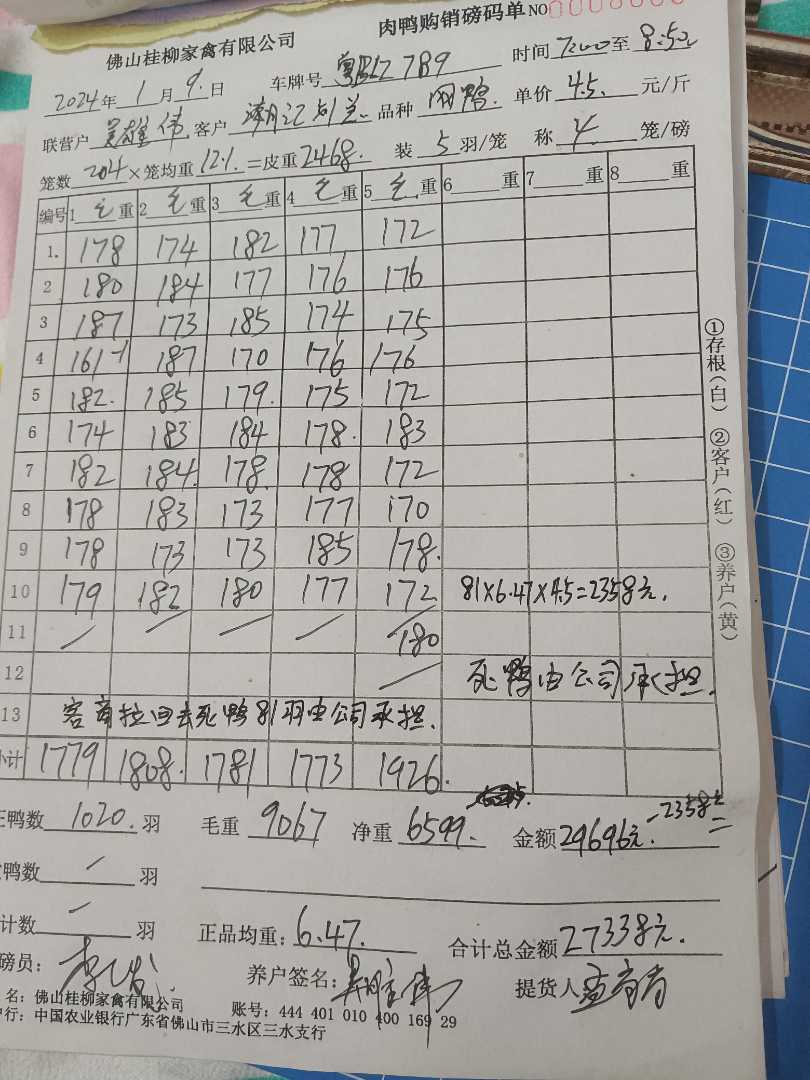 肉鸭购销磅码单 NO
佛山桂柳家禽有限公司
2024年1月9日 车牌号 789 时间 7:00至8:50
联营户 伟 客户 品种 单价 4.5 元/斤
笼数 204 ×笼均重 12.1 =皮重 2468. 装 5 羽/笼 称 4 笼/磅
编号 1 毛重 2 毛重 3 毛重 4 毛重 5 毛重 6 重 7 重 8 重
1. 178 174 182 177 172
2 180 184 177 176 176
3 187 173 185 174 175
4 161-1 187 170 176 176
5 182. 185 179. 175 172
6 174 183 184 178. 183
7 182 184. 178. 178 172
8 178 183 173 177 170
9 178 173 173 185 178.
10 179 182 180 177 172 81×6.47×4.5=2358元.
11 / / / / 180
12 / 死鸭由公司承担.
13 客商拉回去死鸭81羽由公司承担.
小计 1779 1808. 1781 1773 1926.
正鸭数 1020. 羽 毛重 9067 净重 6599. 金额 29696元. -2358元
鸭数 / 羽
计数 / 羽 正品均重: 6.47. 合计总金额 27338元.
磅员: 养户签名: 提货人
名: 佛山桂柳家禽有限公司 账号: 444 401 010 400 169 29
户行: 中国农业银行广东省佛山市三水区三水支行
①存根(白) ②客户(红) ③养户(黄)